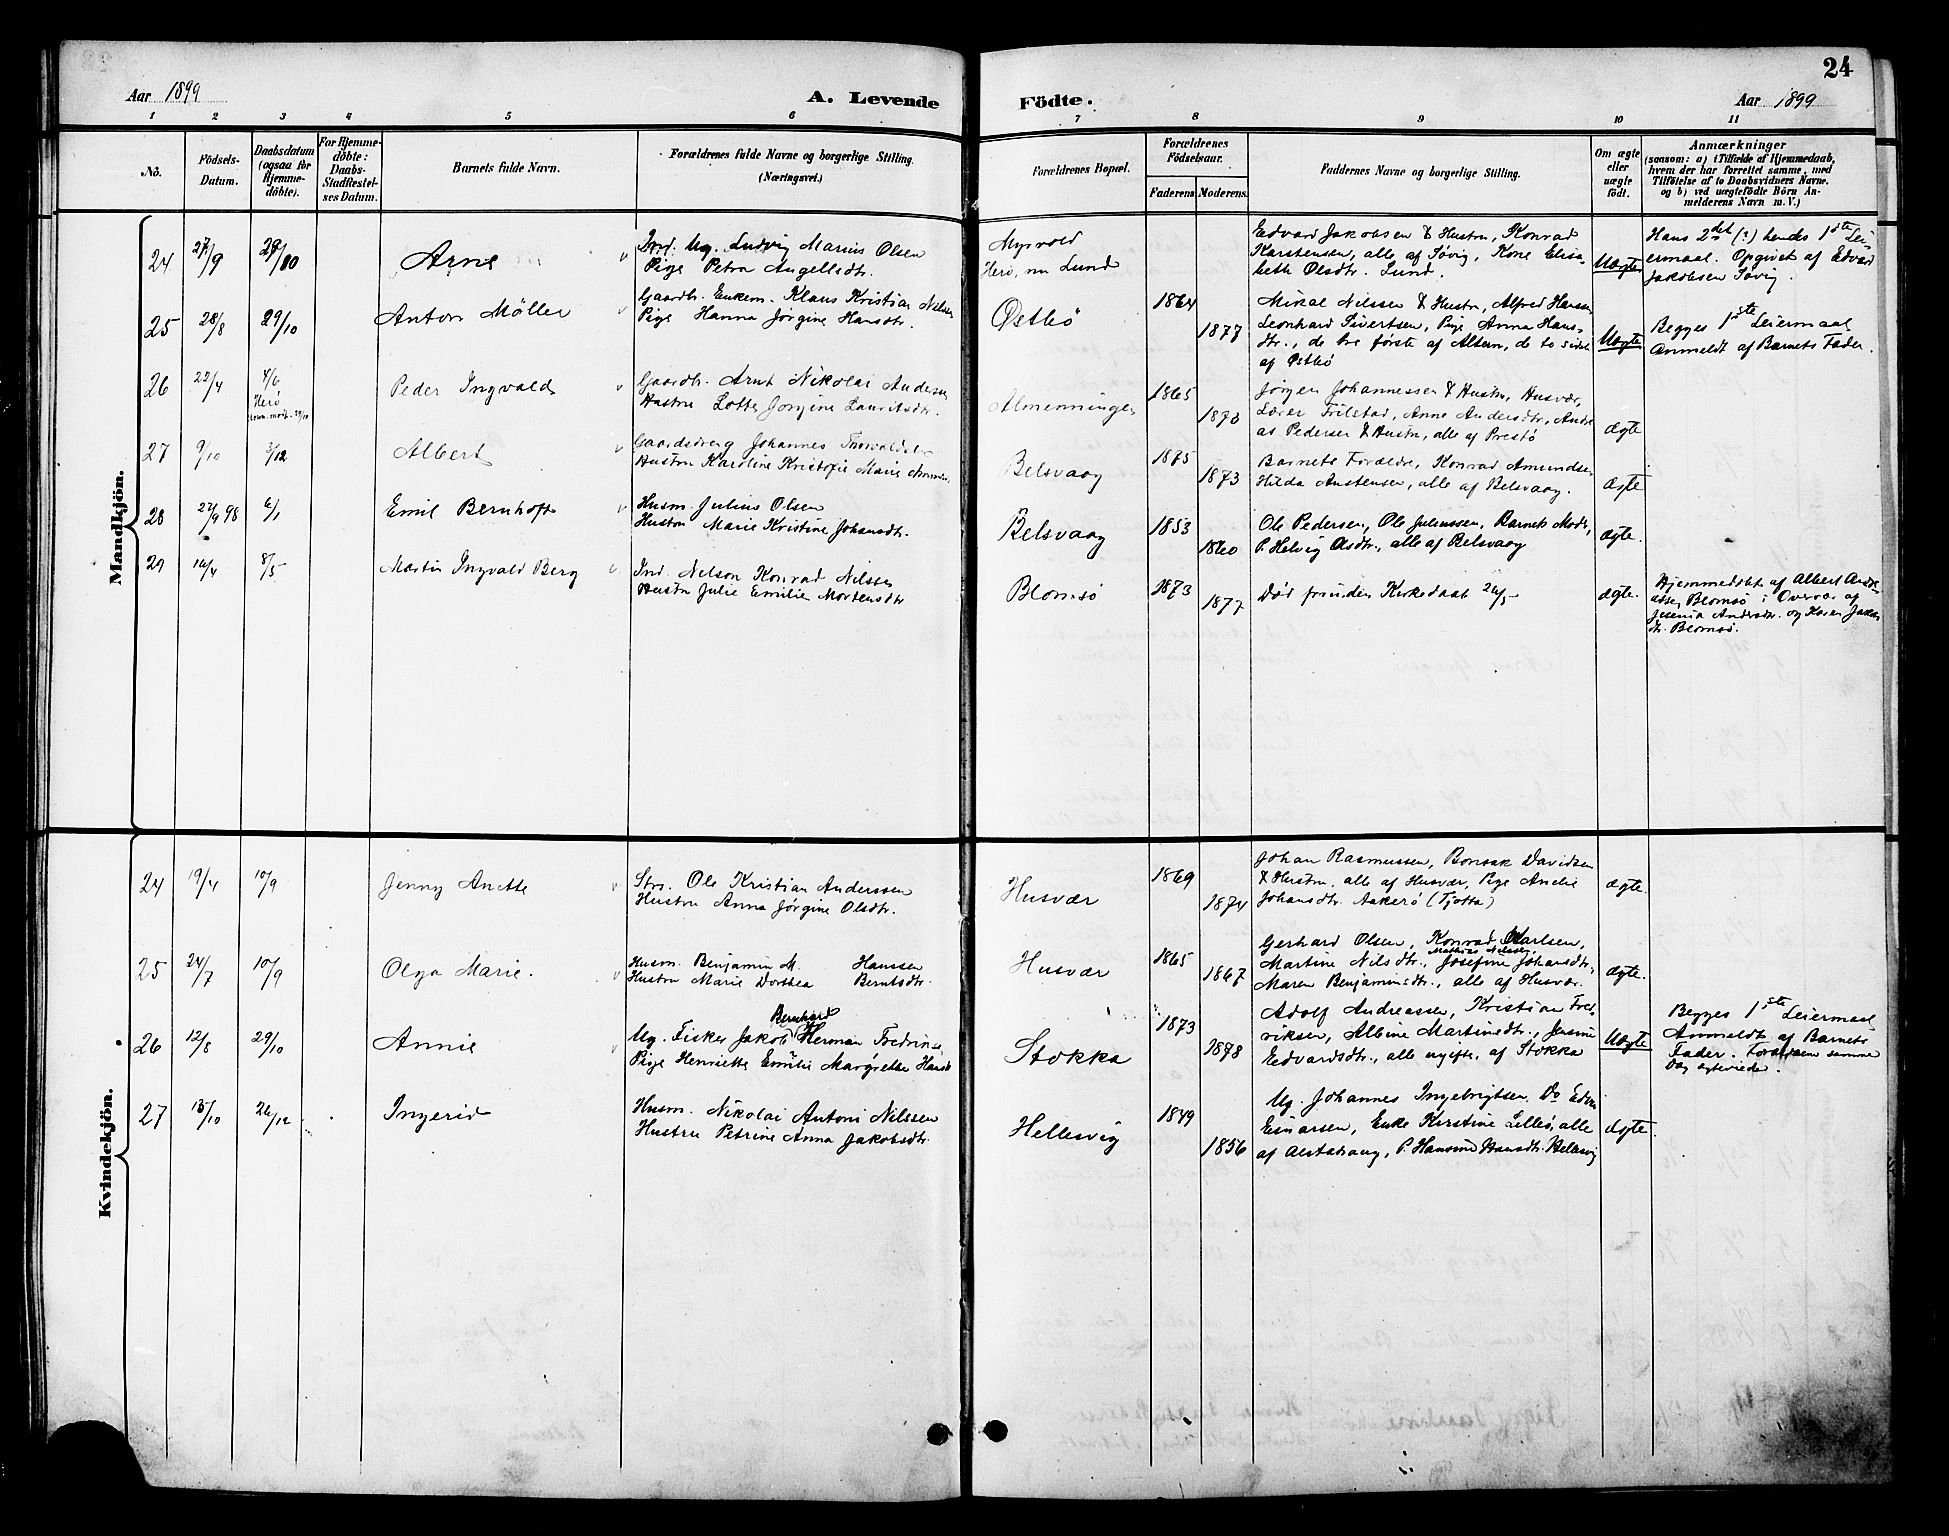 24
Aar 1899
A. Levende
Födte.
Aar 1899
1 2 3 4 5 6 7 8 9 10 11
No.
Födsels-
Datum.
Daabsdatum
(ogsaa for
Hjemme-
döbte).
For Hjemme-
döbte:
Daabs-
Stadfæstel-
ses Datum.
Barnets fulde Navn.
Forældrenes fulde Navne og borgerlige Stilling.
(Næringsvei.)
Forældrenes Bopæl.
Forældrenes
Födselsaar.
Faderens. Moderens.
Faddernes Navne og borgerlige Stilling.
Om ægte
eller
uægte
födt.
Anmærkninger
(saasom: a) i Tilfælde af Hjemmedaab,
hvem der har forrettet samme, med
Tilföielse af to Daabsvidners Navne,
og b) ved uægtefödte Börn An-
melderens Navn m. V.)
Mandkjön.
24 27/9 29/10 Arne
Ind. Ug. Ludvig Marius Olsen
Pige Petra Angellsdtr.
Myrvold
Herö, nu Lund
Edvard Jakobsen & Hustru, Konrad
Karstensen, alle af Tövig, Kone Elisa-
beth Olsdtr. Lund.
Uægte
Hans 2det (?) hendes 1ste Lei-
ermaal. Opgivet af Edvard
Jakobsen Tövig.
25 28/8 29/10 Anton Möller
Gaardbr. Enkem. Klaus Kristian Nilsen
Pige Hanna Jörgine Hansdtr.
Östbö
1864
1877
Mikal Nilssen & Hustru, Alfred Hansen
Leonhard Sivertsen, Pige Anna Hans-
dtr., de tre förste af Altern, de to sidste
af Östbö
Uægte
Begges 1ste Leiermaal
Anmeldt af Barnets Fader.
26 22/4 4/6
Herö
Peder Ingvald
Gaardbr. Arnt Nikolai Andersen
Hustru Lotte Jörgine Lauritsdtr.
Almenningen
1865
1870
Jörgen Johannessen & Hustru, Husvær,
Lærer Frilstad, Anne Andersdtr., Andre-
as Pedersen & Hustru, alle af Prestö
ægte
27 9/10 3/12 Albert
Gaardsdreng Johannes Thorvaldsen
Hustru Karoline Kristofie Marie
Belsvaag
1875
1873
Barnets Forældre, Konrad Amundsen
Hilda Austensen, alle af Belsvaag.
ægte
28 27/9 98 6/1 Emil Bernhoft
Husm. Julius Olsen
Hustru Marie Kristine Johansdtr.
Belsvaag
1853
1860
Ole Pedersen, Ole Juliussen, Barnets Moder,
P. Helvig Olsdtr., alle af Belsvaag
ægte.
29 16/4 8/5 Martin Ingvald Berg
Ind. Nelson Konrad Nilssen
Hustru Julie Emilie Mortensdtr
Blomsö
1873
1877
Död forinden Kirkedaab 26/5
ægte.
Hjemmedöbt af Albert Andre-
assen Blomsö i Overvær af
Jesenia Andersdtr. og Karen Jakobs-
dtr. Blomsö.
Kvindekjön.
24 19/4 10/9 Jenny Anette
Strs. Ole Kristian Anderssen
Hustru Anna Jörgine Olsdtr.
Husvær
1869
1874
Johan Rasmussen, Bonsak Davidsen
& Hustru, alle af Husvær, Pige Andrie
Johansdtr. Aakerö (Tjotta)
ægte.
25 24/7 10/9 Olga Marie.
Husm. Benjamin M. Hanssen
Hustru Marie Dorthea Berntsdtr.
Husvær
1865
1867
Gerhard Olsen, Konrad Karlsen,
Mathias Nilssen
Martine Nilsdtr., Josefine Johansdtr.,
Maren Benjaminsdtr., alle af Husvær.
ægte.
26 12/8 29/10 Annie
Bernhard
Ug. Fisker Jakob Herman Fredriks
Pige Henriette Emilie Margrethe Hansd
Stokka
1873
1878
Adolf Andreassen, Kristian Fred-
riksen, Albine Martinsdtr., Jensine
Edvardsdtr., alle ugifte, af Stokka
Uægte
Begges 1ste Leiermaal
Anmeldt af Barnets
Fader. Forældrene samme
Dag ægteviede.
27 15/10 26/12 Ingerid
Husm. Nikolai Antoni Nilssen
Hustru Petrine Anna Jakobsdtr.
Hellesvig
1849
1856
Ug. Johannes Ingebrigtsen, Do Edvin
Einarsen, Enke Kirstine Lillesö, alle
af Alstadhaug, P. Hansine Hansdtr. Hellesvig
ægte.